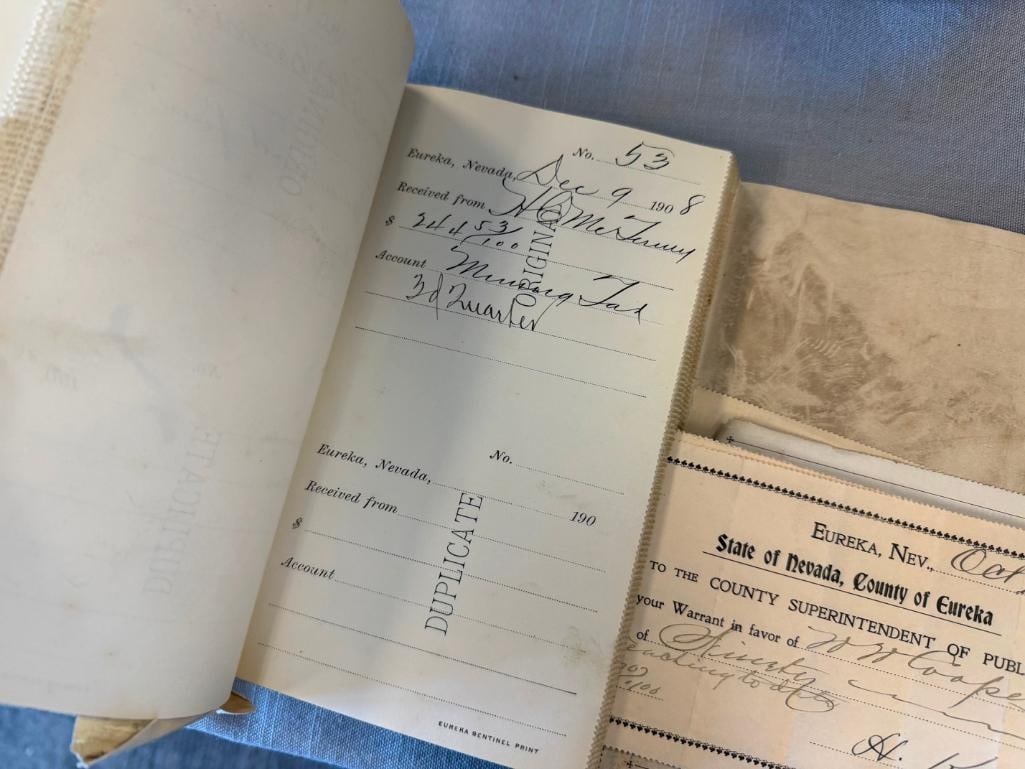 No. 53
Eureka, Nevada, Dec 9 1908
Received from H C McTerney
$ 244 53/100
Account Mining Tax
3d Quarter
ORIGINAL
No.
Eureka, Nevada, 190
Received from
$
Account
DUPLICATE
EUREKA SENTINEL PRINT
DUPLICATE
EUREKA, NEV., Oct
State of Nevada, County of Eureka
TO THE COUNTY SUPERINTENDENT OF PUBL
your Warrant in favor of W W Cooper
of Ninety